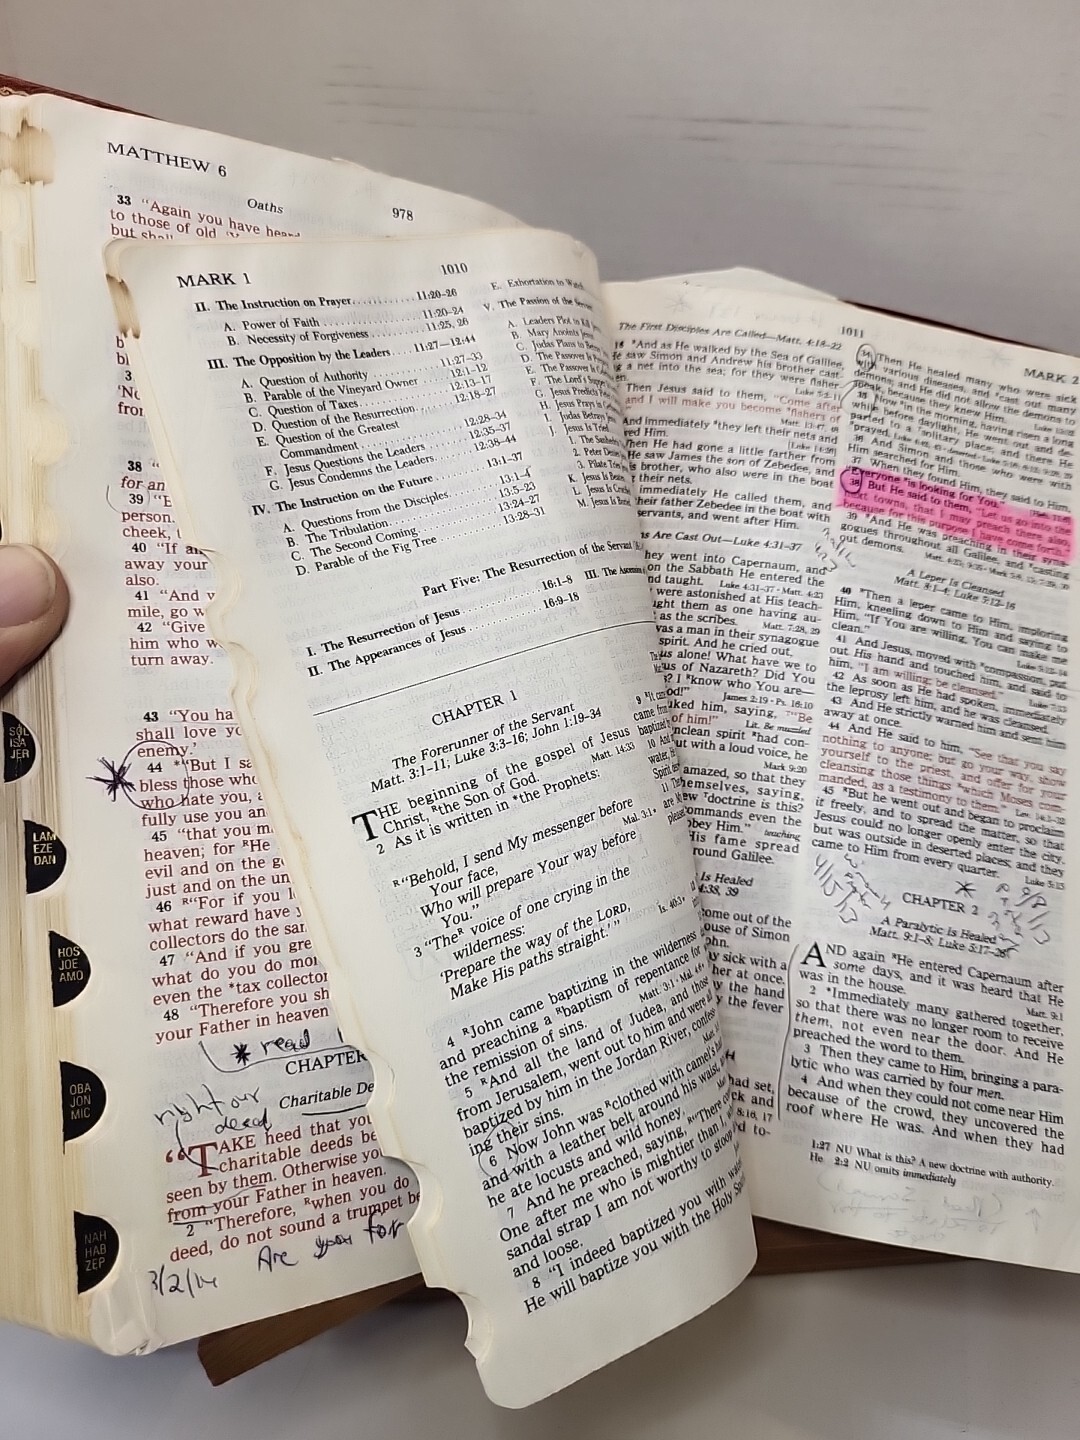 MATTHEW 6
Oaths
978
33 "Again you have
to those of old
but
38
for an
39
person.
cheek,
40 "If
away your
also.
41 "And
mile, go
42 "Give
him who w
turn away.
43 "You ha
shall love yo
enemy.'
44 *"But I sa
bless those who
who hate you,
fully use you an
45 "that you m
heaven; for ᴿHe
evil and on the g
just and on the un
46 ᴿ"For if you l
what reward have
collectors do the sam
47 "And if you gre
what do you do mo
even the *tax collector
48 "Therefore you sh
your Father in heaven
* read
CHAPTER
Charitable De
right our
deed
"TAKE heed that you
charitable deeds be
seen by them. Otherwise you
from your Father in heaven.
2 "Therefore, ᴿwhen you do
deed, do not sound a trumpet be
Are you for
3/2/14
SOL
ISA
JER
LAM
EZE
DAN
HOS
JOE
AMO
OBA
JON
MIC
NAH
HAB
ZEP
MARK 1
1010
II. The Instruction on Prayer............ 11:20–26
A. Power of Faith .................. 11:20–24
B. Necessity of Forgiveness........ 11:25, 26
III. The Opposition by the Leaders.... 11:27—12:44
A. Question of Authority ............ 11:27–33
B. Parable of the Vineyard Owner .... 12:1–12
C. Question of Taxes................ 12:13–17
D. Question of the Resurrection...... 12:18–27
E. Question of the Greatest
Commandment .................. 12:28–34
F. Jesus Questions the Leaders ...... 12:35–37
G. Jesus Condemns the Leaders....... 12:38–44
IV. The Instruction on the Future......... 13:1–37
A. Questions from the Disciples....... 13:1–4
B. The Tribulation.................. 13:5–23
C. The Second Coming.............. 13:24–27
D. Parable of the Fig Tree ........... 13:28–31
E. Exhortation to Watch
V. The Passion of the Servant
A. Leaders Plot to Kill
B. Mary Anoints
C. Judas Plans to
D. The Passover Is
E. The Passover
F. The Lord's
G. Jesus Predicts
H. Jesus Prays in
I. Judas Betrays
J. Jesus Is Tried
1. The
2. Peter
3. Pilate
K. Jesus Is Beaten
L. Jesus Is
M. Jesus Is
Part Five: The Resurrection of the Servant
I. The Resurrection of Jesus ............ 16:1–8
II. The Appearances of Jesus ........... 16:9–18
III. The Ascension
CHAPTER 1
The Forerunner of the Servant
Matt. 3:1–11; Luke 3:3–16; John 1:19–34
THE beginning of the gospel of Jesus
Christ, ᴿthe Son of God. Matt. 14:33
2 As it is written in *the Prophets:
ᴿ"Behold, I send My messenger before
Your face,
Mal. 3:1
Who will prepare Your way before
You."
3 "Theᴿ voice of one crying in the
wilderness: Is. 40:3
'Prepare the way of the LORD,
Make His paths straight.' "
4 ᴿJohn came baptizing in the wilderness
and preaching a ᴿbaptism of repentance for
the remission of sins. Matt. 3:1
5 ᴿAnd all the land of Judea, and those
from Jerusalem, went out to him and were all
baptized by him in the Jordan River, confess-
ing their sins.
6 Now John was ᴿclothed with camel's
and with a leather belt around his waist,
he ate locusts and wild honey.
7 And he preached, saying, ᴿ"There
One after me who is mightier than I,
sandal strap I am not worthy to stoop
and loose.
8 "I indeed baptized you with
He will baptize you with the Holy
1011
MARK 2
The First Disciples Are Called—Matt. 4:18–22
16 *And as He walked by the Sea of Galilee,
saw Simon and Andrew his brother cast-
a net into the sea; for they were fisher-
Then Jesus said to them, "Come after
and I will make you become ᴿfishers of
And immediately ᴿthey left their nets and
ed Him.
When He had gone a little farther from
He saw James the son of Zebedee, and
brother, who also were in the boat
their nets.
immediately He called them, and
their father Zebedee in the boat with
servants, and went after Him.
Are Cast Out—Luke 4:31–37
they went into Capernaum, and
on the Sabbath He entered the
nd taught.
were astonished at His teach-
ught them as one having au-
as the scribes.
Matt. 7:28, 29
was a man in their synagogue
spirit. And he cried out,
us alone! What have we to
us of Nazareth? Did You
I ᴿknow who You are—
od!"
James 2:19 · Ps. 16:10
uked him, saying, "Be
of him!"
Lit. Be muzzled
nclean spirit ᴿhad con-
ut with a loud voice, he
Mark 9:20
amazed, so that they
hemselves, saying,
new *doctrine is this?
commands even the
obey Him." teaching
His fame spread
round Galilee.
Is Healed
4:38, 39
come out of the
ouse of Simon
ohn.
ay sick with a
her at once.
by the hand
y the fever
had set,
34 Then He healed many who were sick
with various diseases, and ᴿcast out many
demons; and He did not allow the demons to
speak, because they knew Him.
35 Now ᴿin the morning, having risen a long
while before daylight, He went out and de-
parted to a *solitary place; and there He
prayed.
36 And Simon and those who were with
Him searched for Him.
37 When they found Him, they said to Him,
"Everyone ᴿis looking for You."
38 But He said to them, "Let us go into the
next towns, that I may preach there also,
because for this purpose I have come forth."
39 ᴿAnd He was preaching in their syna-
gogues throughout all Galilee, and ᴿcasting
out demons.
A Leper Is Cleansed
Matt. 8:1–4; Luke 5:12–16
40 ᴿThen a leper came to Him, imploring
Him, kneeling down to Him and saying to
Him, "If You are willing, You can make me
clean." Luke 5:12–14
41 And Jesus, moved with ᴿcompassion, put
out His hand and touched him, and said to
him, "I am willing; be cleansed." Luke 7:13
42 As soon as He had spoken, immediately
the leprosy left him, and he was cleansed.
43 And He strictly warned him and sent him
away at once.
44 And He said to him, "See that you say
nothing to anyone; but go your way, show
yourself to the priest, and offer for your
cleansing those things ᴿwhich Moses com-
manded, as a testimony to them." Lev. 14:1–32
45 ᴿBut he went out and began to proclaim
it freely, and to spread the matter, so that
Jesus could no longer openly enter the city,
but was outside in deserted places; and they
came to Him from every quarter. Luke 5:15
CHAPTER 2
A Paralytic Is Healed
Matt. 9:1–8; Luke 5:17–26
AND again ᴿHe entered Capernaum after
some days, and it was heard that He
was in the house. Matt. 9:1
2 *Immediately many gathered together,
so that there was no longer room to receive
them, not even near the door. And He
preached the word to them.
3 Then they came to Him, bringing a para-
lytic who was carried by four men.
4 And when they could not come near Him
because of the crowd, they uncovered the
roof where He was. And when they had
1:27 NU What is this? A new doctrine with authority.
He 2:2 NU omits immediately